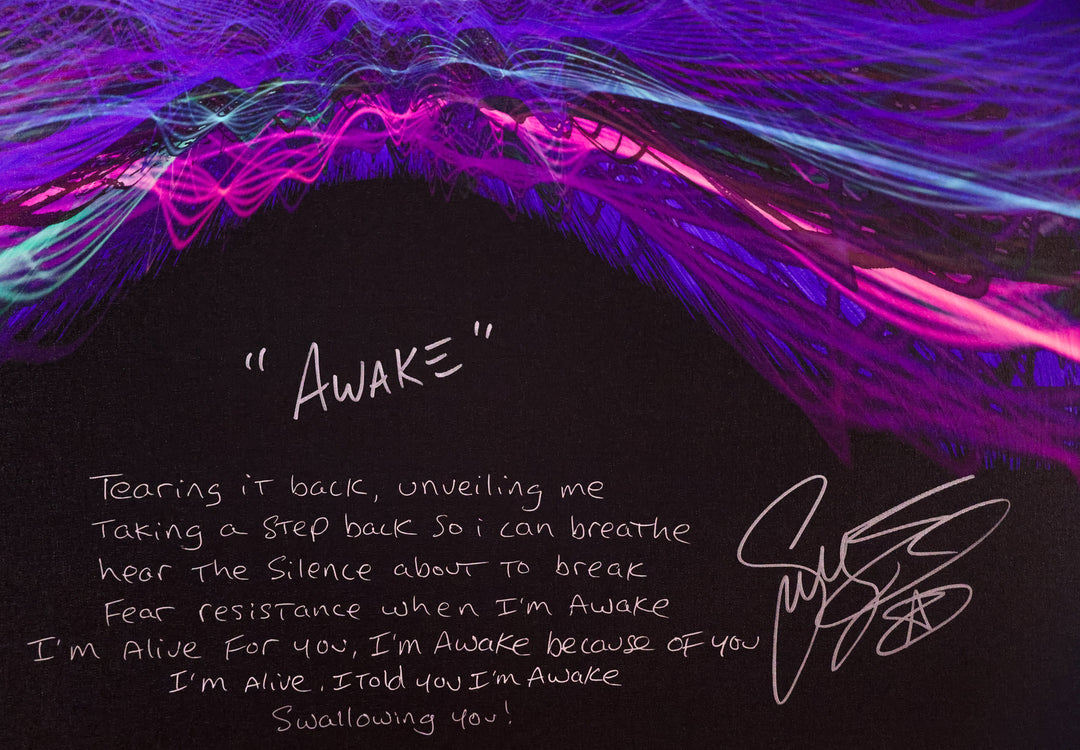 "AWAKE"
Tearing it back, unveiling me
Taking a step back so i can breathe
hear the silence about to break
Fear resistance when I'm Awake
I'm Alive For you, I'm Awake because of you
I'm Alive, I told you I'm Awake
Swallowing you!